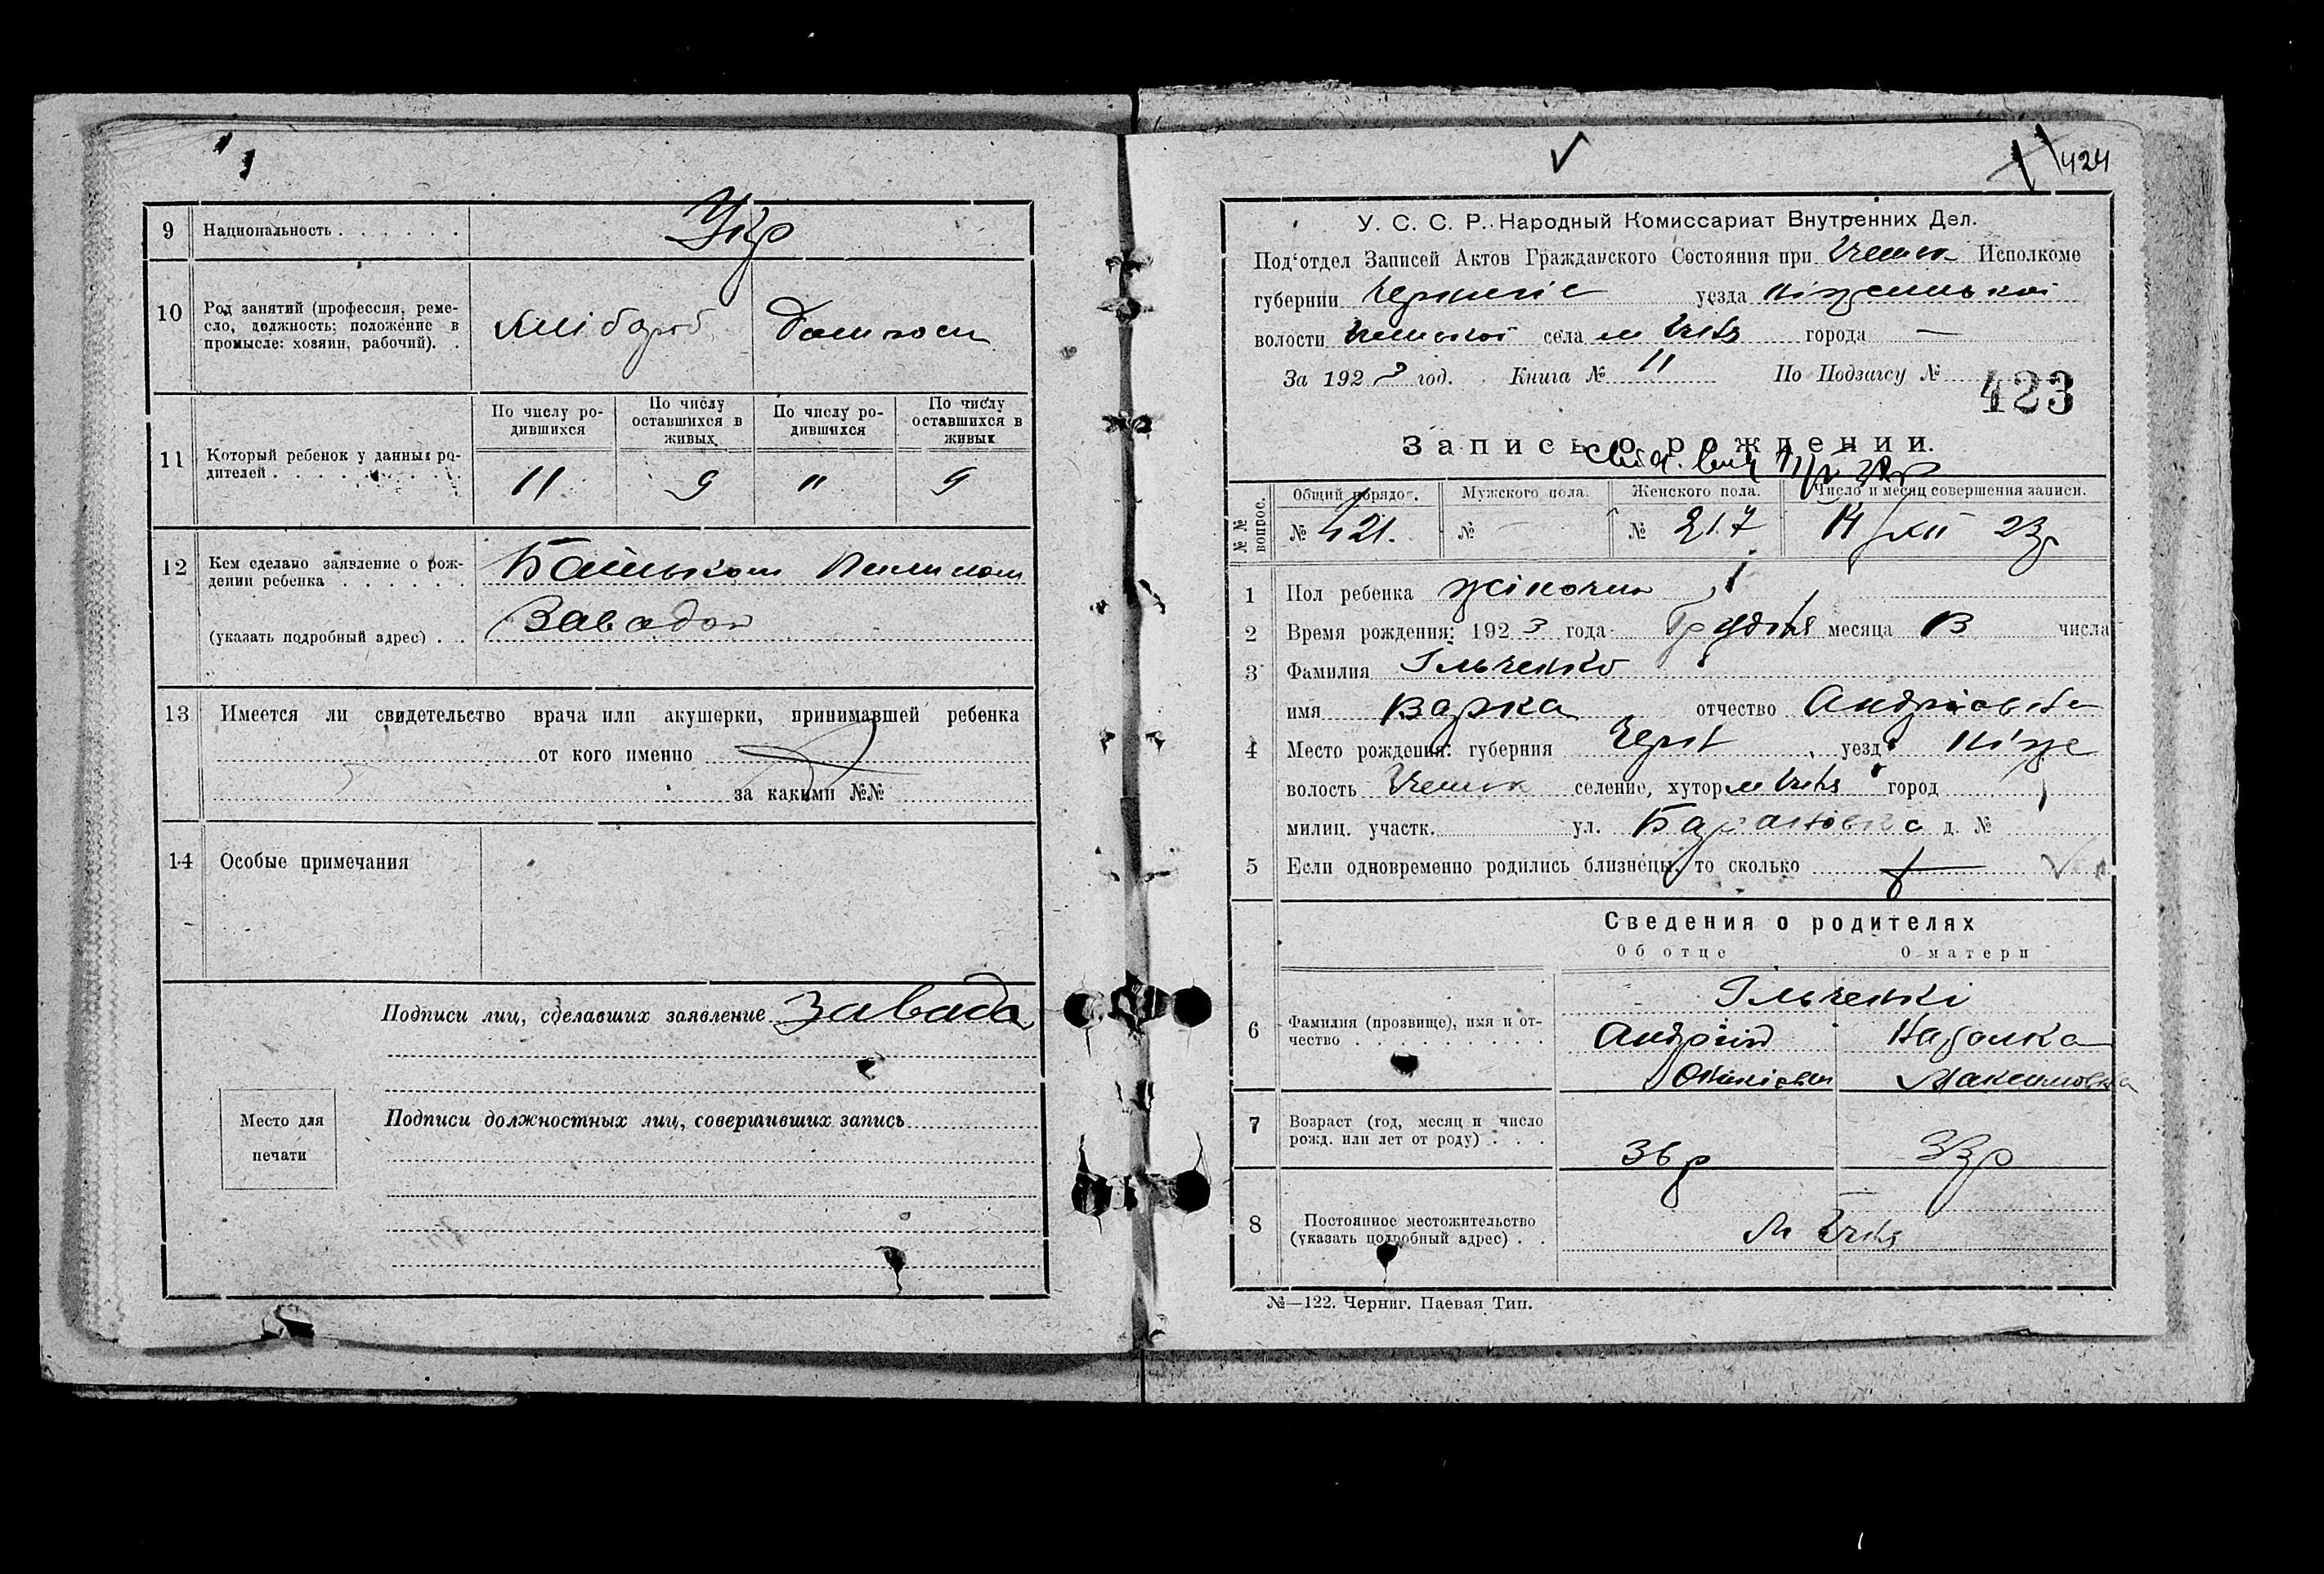 9 Национальность . . . . . . Укр
10 Род занятий (профессия, реме-
сло, должность; положение в
промысле: хозяин, рабочий). .
Хлібороб
11 Который ребенок у данных ро-
дителей . . . . . . . . . .
По числу ро-
дившихся
По числу
оставшихся в
живых
По числу ро-
дившихся
По числу
оставшихся в
живых
11 9 " 9
12 Кем сделано заявление о рож-
дении ребенка . . . . . .
(указать подробный адрес) . .
Батьком Пилипом
Завадою
13 Имеется ли свидетельство врача или акушерки, принимавшей ребенка
от кого именно
за какими №№
14 Особые примечания
Подписи лиц, сделавших заявление Завада
Место для
печати
Подписи должностных лиц, совершивших запись
424
У. С. С. Р. Народный Комиссариат Внутренних Дел.
Под‘отдел Записей Актов Гражданского Состояния при Иченск Исполкоме
губернии Черниг уезда Ніженської
волости Иченської села м Ичня города —
За 1923 год. Книга № 11 По Подзагсу №
423
Запись о рождении.
№№ вопрос.
Общий порядок. Мужского пола. Женского пола. Число и месяц совершения записи.
№ 421. № — № 217 14/XII 23р
1 Пол ребенка жіночий
2 Время рождения: 1923 года Грудня месяца 13 числа
3 Фамилия Ільченко
имя Варка отчество Андріевна
4 Место рождения: губерния Черн уезд Ніже
волость Иченск селение, хутор м Ичня город
милиц. участк. ул. д. №
5 Если одновременно родились близнецы, то сколько
Сведения о родителях
Об отце О матери
6 Фамилия (прозвище), имя и от-
чество . . . . . . . . .
Ільченкі
Андрій Наталка
Максимовна
7 Возраст (год, месяц и число
рожд. или лет от роду) . . .
36р 33р
8 Постоянное местожительство
(указать подробный адрес) . .
м Ичня
№—122. Черниг. Паевая Тип.